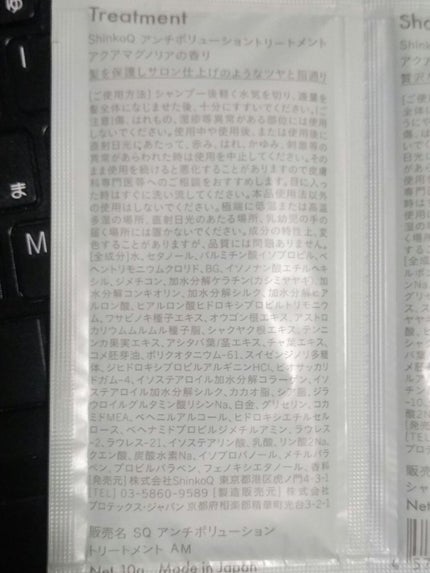 Treatment
ShinkoQ アンチポリューショントリートメント
アクアマグノリアの香り
髪を保護しサロン仕上げのようなツヤと指通り
[ご使用方法]シャンプー後軽く水気を切り、適量を
髪全体になじませた後、十分にすすいでください。[ご
注意]傷、はれもの、湿疹等異常がある部位には使用
しないでください。使用中や使用後、または使用後に
直射日光にあたって、赤み、はれ、かゆみ、刺激等の
異常があらわれた時は使用を中止してください。その
まま使用を続けると悪化することがありますので皮膚
科専門医等へのご相談をおすすめします。目に入っ
た時はすぐに洗い流してください。本品使用方法以外
の使用はしないでください。極端に低温または高温
多湿の場所、直射日光のあたる場所、乳幼児の手の
届く場所には置かないでください。成分の特性上、変
色することがありますが、品質には問題ありません。
[全成分]水、セタノール、パルミチン酸イソプロピル、ベ
ヘントリモニウムクロリド、BG、イソノナン酸エチルヘキ
シル、ジメチコン、加水分解ケラチン(カシミヤヤギ)、加
水分解コンキオリン、加水分解シルク、加水分解ヒアル
ロン酸、ヒアルロン酸ヒドロキシプロピルトリモニウ
ム、ワサビノキ種子エキス、オウゴン根エキス、アストロ
カリウムムルムル種子脂、シャクヤク根エキス、テンニン
カ果実エキス、アシタバ葉/茎エキス、チャ葉エキス、
コメ胚芽油、ポリクオタニウム-61、スイゼンジノリ多糖
体、ジヒドロキシプロピルアルギニンHCl、ヒアサッカリ
ドガム-4、イソステアロイル加水分解コラーゲン、イソ
ステアロイル加水分解シルク、カカオ脂、シア脂、ジラ
ウロイルグルタミン酸リシンNa、白金、グリセリン、コカ
ミドMEA、ベヘニルアルコール、ヒドロキシエチルセル
ロース、ベヘナミドプロピルジメチルアミン、ラウレス
-2、ラウレス-21、イソステアリン酸、乳酸、リン酸2Na、
クエン酸、炭酸水素Na、イソプロパノール、メチルパラ
ベン、プロピルパラベン、フェノキシエタノール、香料
[発売元]株式会社ShinkoQ 東京都港区虎ノ門4-3-1
[TEL] 03-5860-9589 [製造販売元] 株式会社
プロテックス・ジャパン 京都府相楽郡精華町光台3-2-1
販売名 SQ アンチポリューション
トリートメント AM
Net 10g Made in Japan
M
ま
ゅ